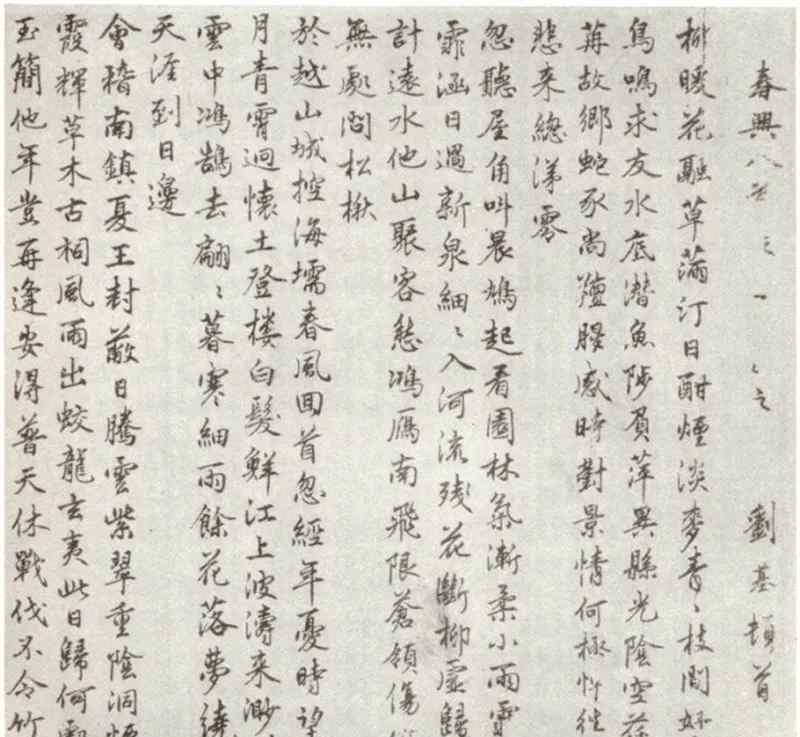 春興八 劉基頓首
柳暖花融草滿汀日酣煙淡麥青〻枝間好
鳥鳴求友水底潛魚陟負萍異縣光陰空荏
苒故鄉蛇豕尚羶腥感時對景情何極忤往
悲来總涕零
忽聽屋角叫晨鳩起看園林氣漸柔小雨霏
霏涵日過新泉細〻入河流殘花斷柳虛歸
計遠水他山聚客愁鴻雁南飛限蒼領傷
無處問松楸
於越山城控海壖春風回首忽經年憂時望
月青霄迥懷土登樓白髮鮮江上波濤来渺
雲中鴻鵠去翩〻暮寒細雨餘花落夢繞
天涯到日邊
會稽南鎮夏王封蔽日騰雲紫翠重陰洞煙
霞輝草木古祠風雨出蛟龍玄夷此日歸何處
玉簡他年豈再逢安得普天休戰伐不令竹